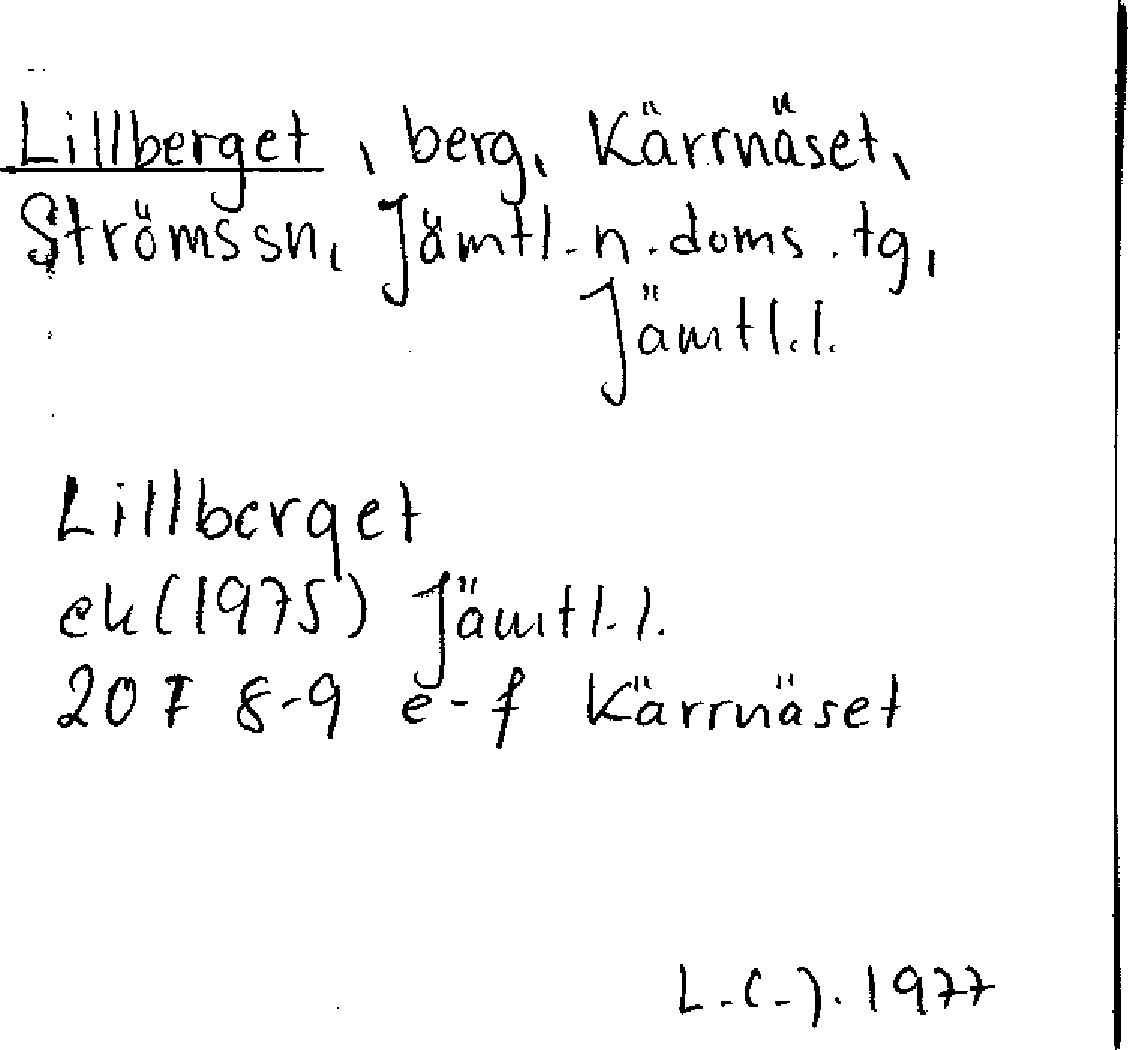 Lillberget, berg, Kärrnäset,
Ströms sn, Jämtl. n. doms. tg,
Jämtl. l.
Lillberget
ek (1975) Jämtl. l.
20 F 8-9 e-f Kärrnäset
1977